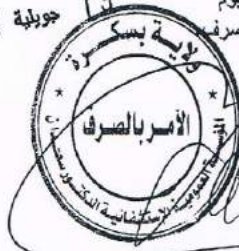 جويلية
يوم
صرف
ولاية بسكرة
الأمر بالصرف
المؤسسة العمومية الإستشفائية الدكتور سعدان